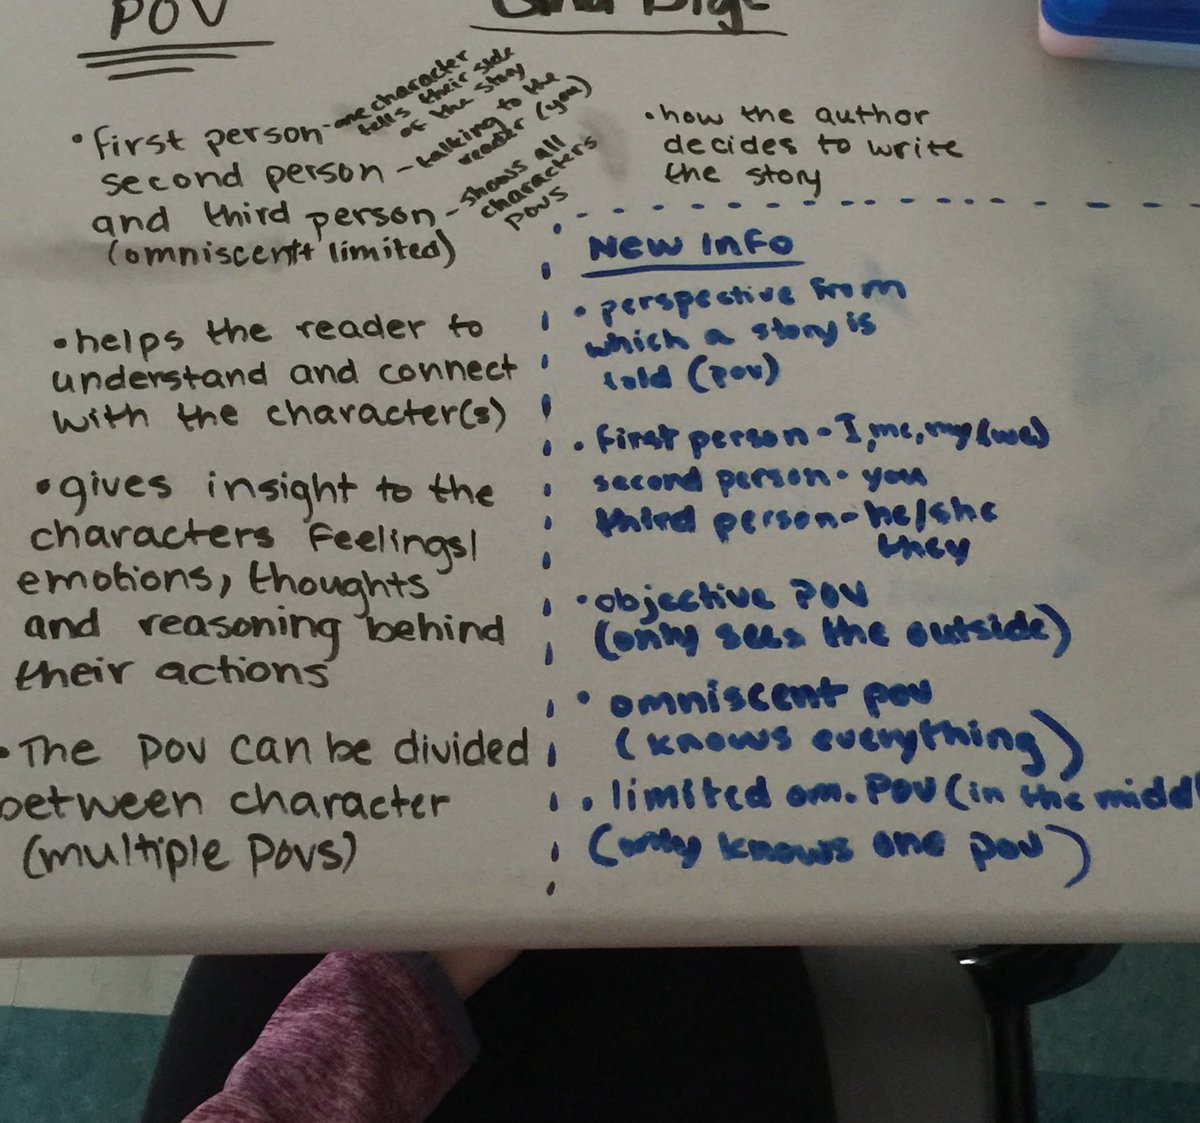 POV
• first person - one character
tells their side
of the story
second person - talking to the
reader (you)
and third person - shows all
characters
POVS
(omniscent + limited)
• helps the reader to
understand and connect
with the character(s)
• gives insight to the
characters feelings/
emotions, thoughts
and reasoning behind
their actions
• The POV can be divided
between character
(multiple POVs)
• how the author
decides to write
the story
New Info
• perspective from
which a story is
told (POV)
• first person - I, me, my (we)
second person - you
third person - he/she
they
• objective POV
(only sees the outside)
• omniscent pov
(knows everything)
• limited om. POV (in the middl
(only knows one pov)